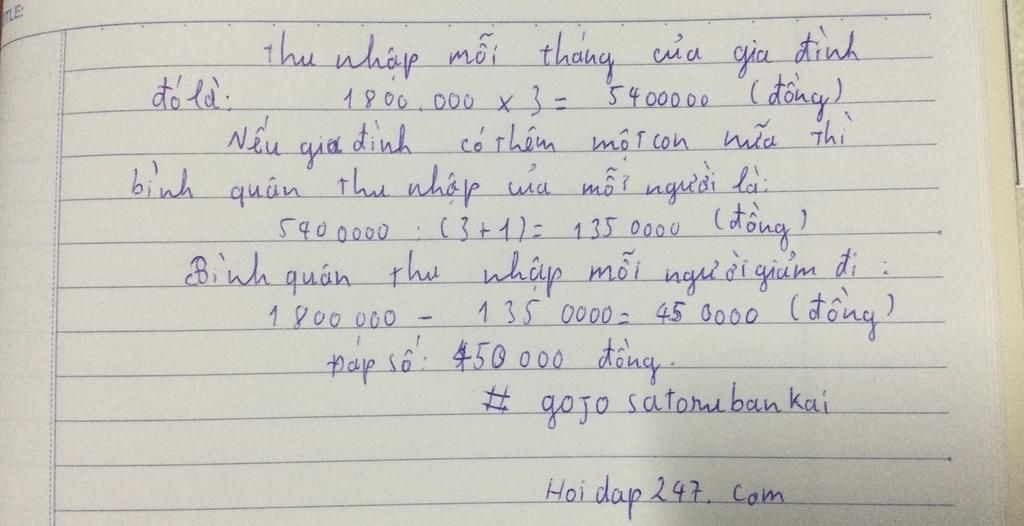 TLE:
thu nhập mỗi tháng của gia đình
đó là: 1800.000 x 3 = 5400000 (đồng)
Nếu gia đình có thêm một con nữa thì
bình quân thu nhập của mỗi người là:
5400000 : (3+1) = 1350000 (đồng)
Bình quân thu nhập mỗi người giảm đi :
1800000 - 1350000 = 450000 (đồng)
Đáp số: 450000 đồng.
# gojo satoru bankai
Hoidap247.com